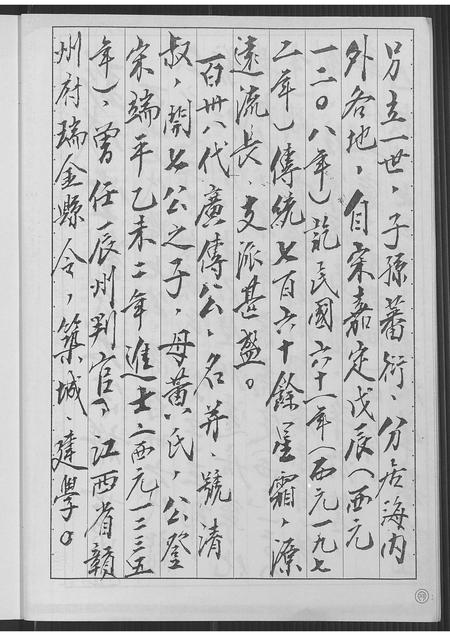 另立一世，子孫蕃衍、分居海內
外各地，自宋嘉定戊辰（西元
一二０八年）訖民國六十一年（西元一九七
二年）傳統七百六十餘星霜，源
遠流長、支派甚盛。
一百卅八代廣傳公，名莽、號清
叔，開七公之子，母黃氏，公登
宋端平乙未二年進士（西元一二三五
年），曾任辰州判官、江西省贛
州府瑞金縣令，築城、建學。